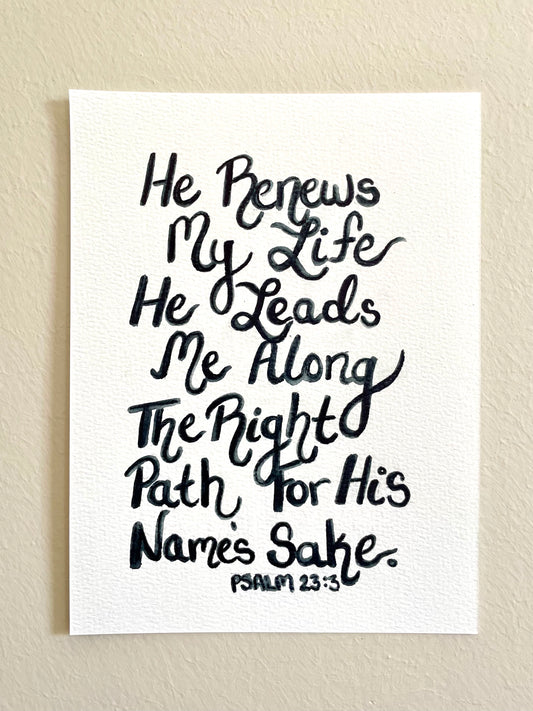 He Renews
My Life
He Leads
Me Along
The Right
Path For His
Name's Sake.
PSALM 23:3